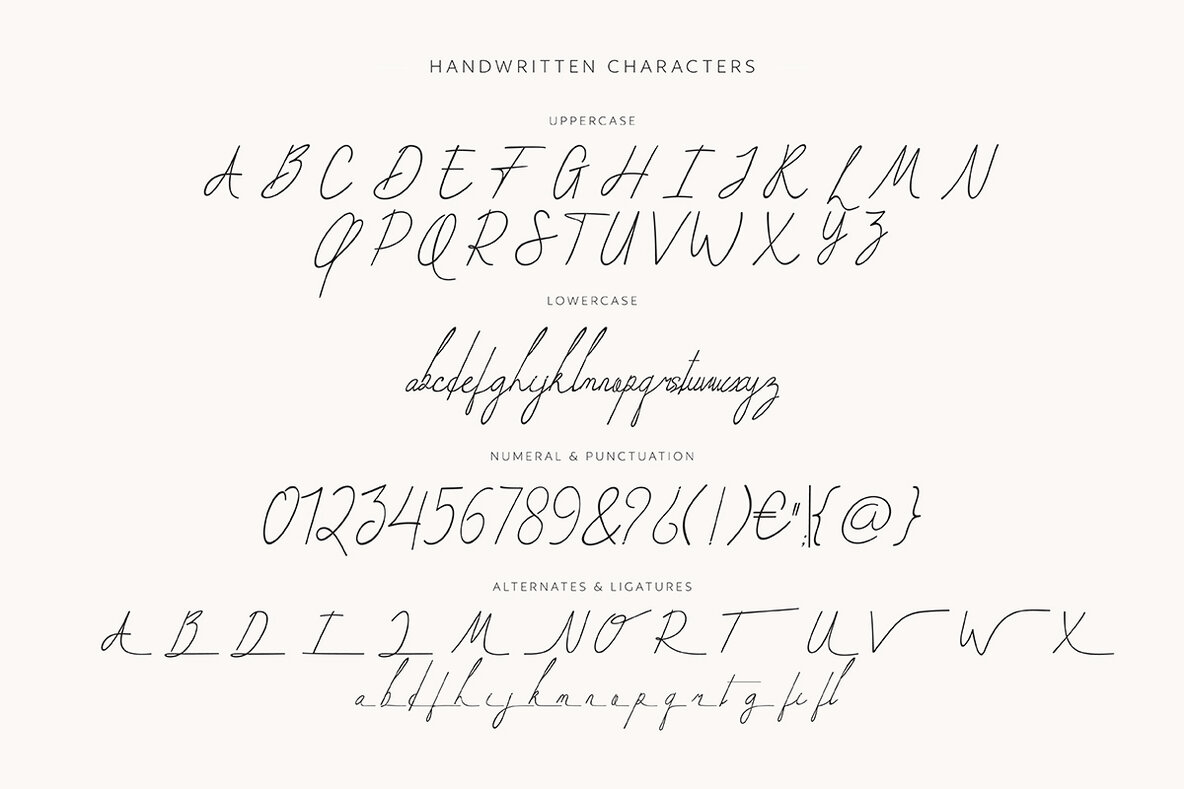 HANDWRITTEN CHARACTERS
UPPERCASE
A B C D E F G H I J R L M N
O P Q R S T U V W X Y Z
LOWERCASE
abcdefghijklmnopqrstuvwxyz
NUMERAL & PUNCTUATION
0123456789&?¿(|)€":;|{@}
ALTERNATES & LIGATURES
A B D I J M N O R T U V W X
a b d f h i j k m n o p q r t g fi fl